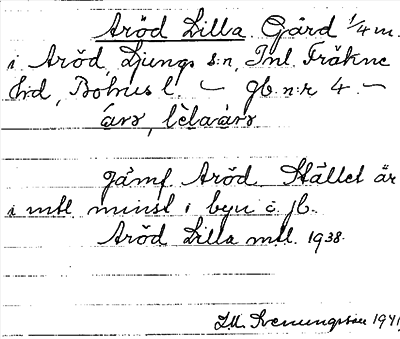 Aröd Lilla. Gård 1/4 m.
i Aröd, Ljungs s:n, Inl. Fräkne
Hd, Bohus l. — gb. n:r 4. —
àrö, lèlaàrö
jämf. Aröd. Stället är
i mtl minst i byn i jb.
Aröd Lilla mtl. 1938.
Svenungsson 1941